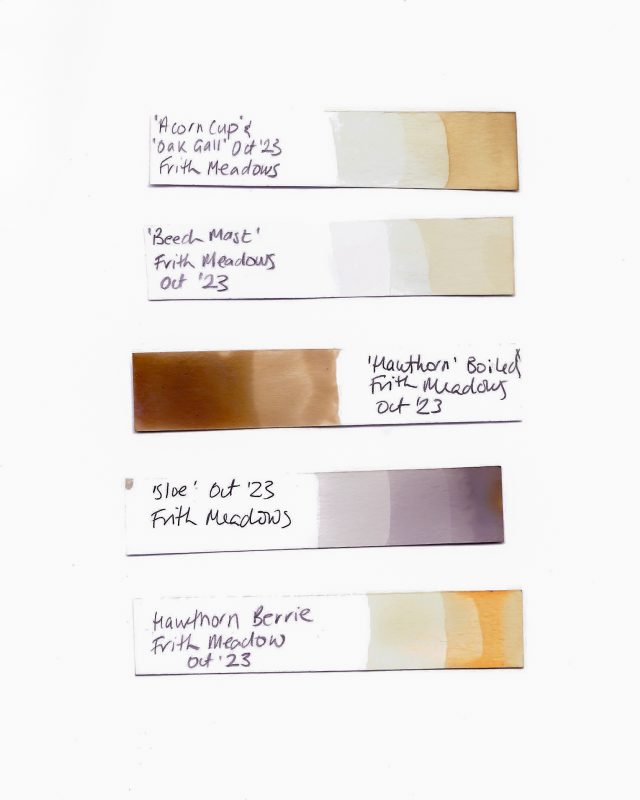 'Acorn Cup' &
'Oak Gall' Oct '23
Frith Meadows
'Beech Mast'
Frith Meadows
Oct '23
'Hawthorn' Boiled
Frith Meadows
Oct '23
'Sloe' Oct '23
Frith Meadows
Hawthorn Berrie
Frith Meadow
Oct '23